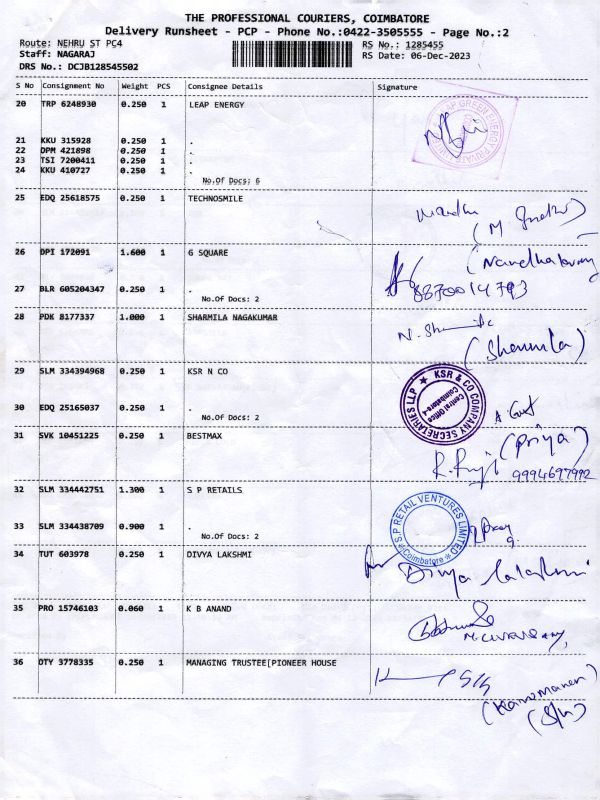 THE PROFESSIONAL COURIERS, COIMBATORE
Delivery Runsheet - PCP - Phone No.:0422-3505555 - Page No.:2
Route: NEHRU ST PC4 RS No.: 1285455
Staff: NAGARAJ RS Date: 06-Dec-2023
DRS No.: DCJB128545502
S No Consignment No Weight PCS Consignee Details Signature
20 TRP 6248930 0.250 1 LEAP ENERGY
21 KKU 315928 0.250 1 .
22 DPM 421898 0.250 1 .
23 TSI 7200411 0.250 1 .
24 KKU 410727 0.250 1 .
No.Of Docs: 6
25 EDQ 25618575 0.250 1 TECHNOSMILE
26 DPI 172091 1.600 1 G SQUARE
27 BLR 605204347 0.250 1 .
8870014793
No.Of Docs: 2
28 PDK 8177337 1.000 1 SHARMILA NAGAKUMAR
(Sharmila)
29 SLM 334394968 0.250 1 KSR N CO
KSR & CO COMPANY SECRETARIES LLP
Central Office
Coimbatore-4
30 EDQ 25165037 0.250 1 .
No.Of Docs: 2
31 SVK 10451225 0.250 1 BESTMAX
(Priya)
9994697992
32 SLM 334442751 1.300 1 S P RETAILS
S.P RETAIL VENTURES LIMITED
Coimbatore
33 SLM 334438709 0.900 1 .
No.Of Docs: 2
34 TUT 603978 0.250 1 DIVYA LAKSHMI
35 PRO 15746103 0.060 1 K B ANAND
36 OTY 3778335 0.250 1 MANAGING TRUSTEE[PIONEER HOUSE